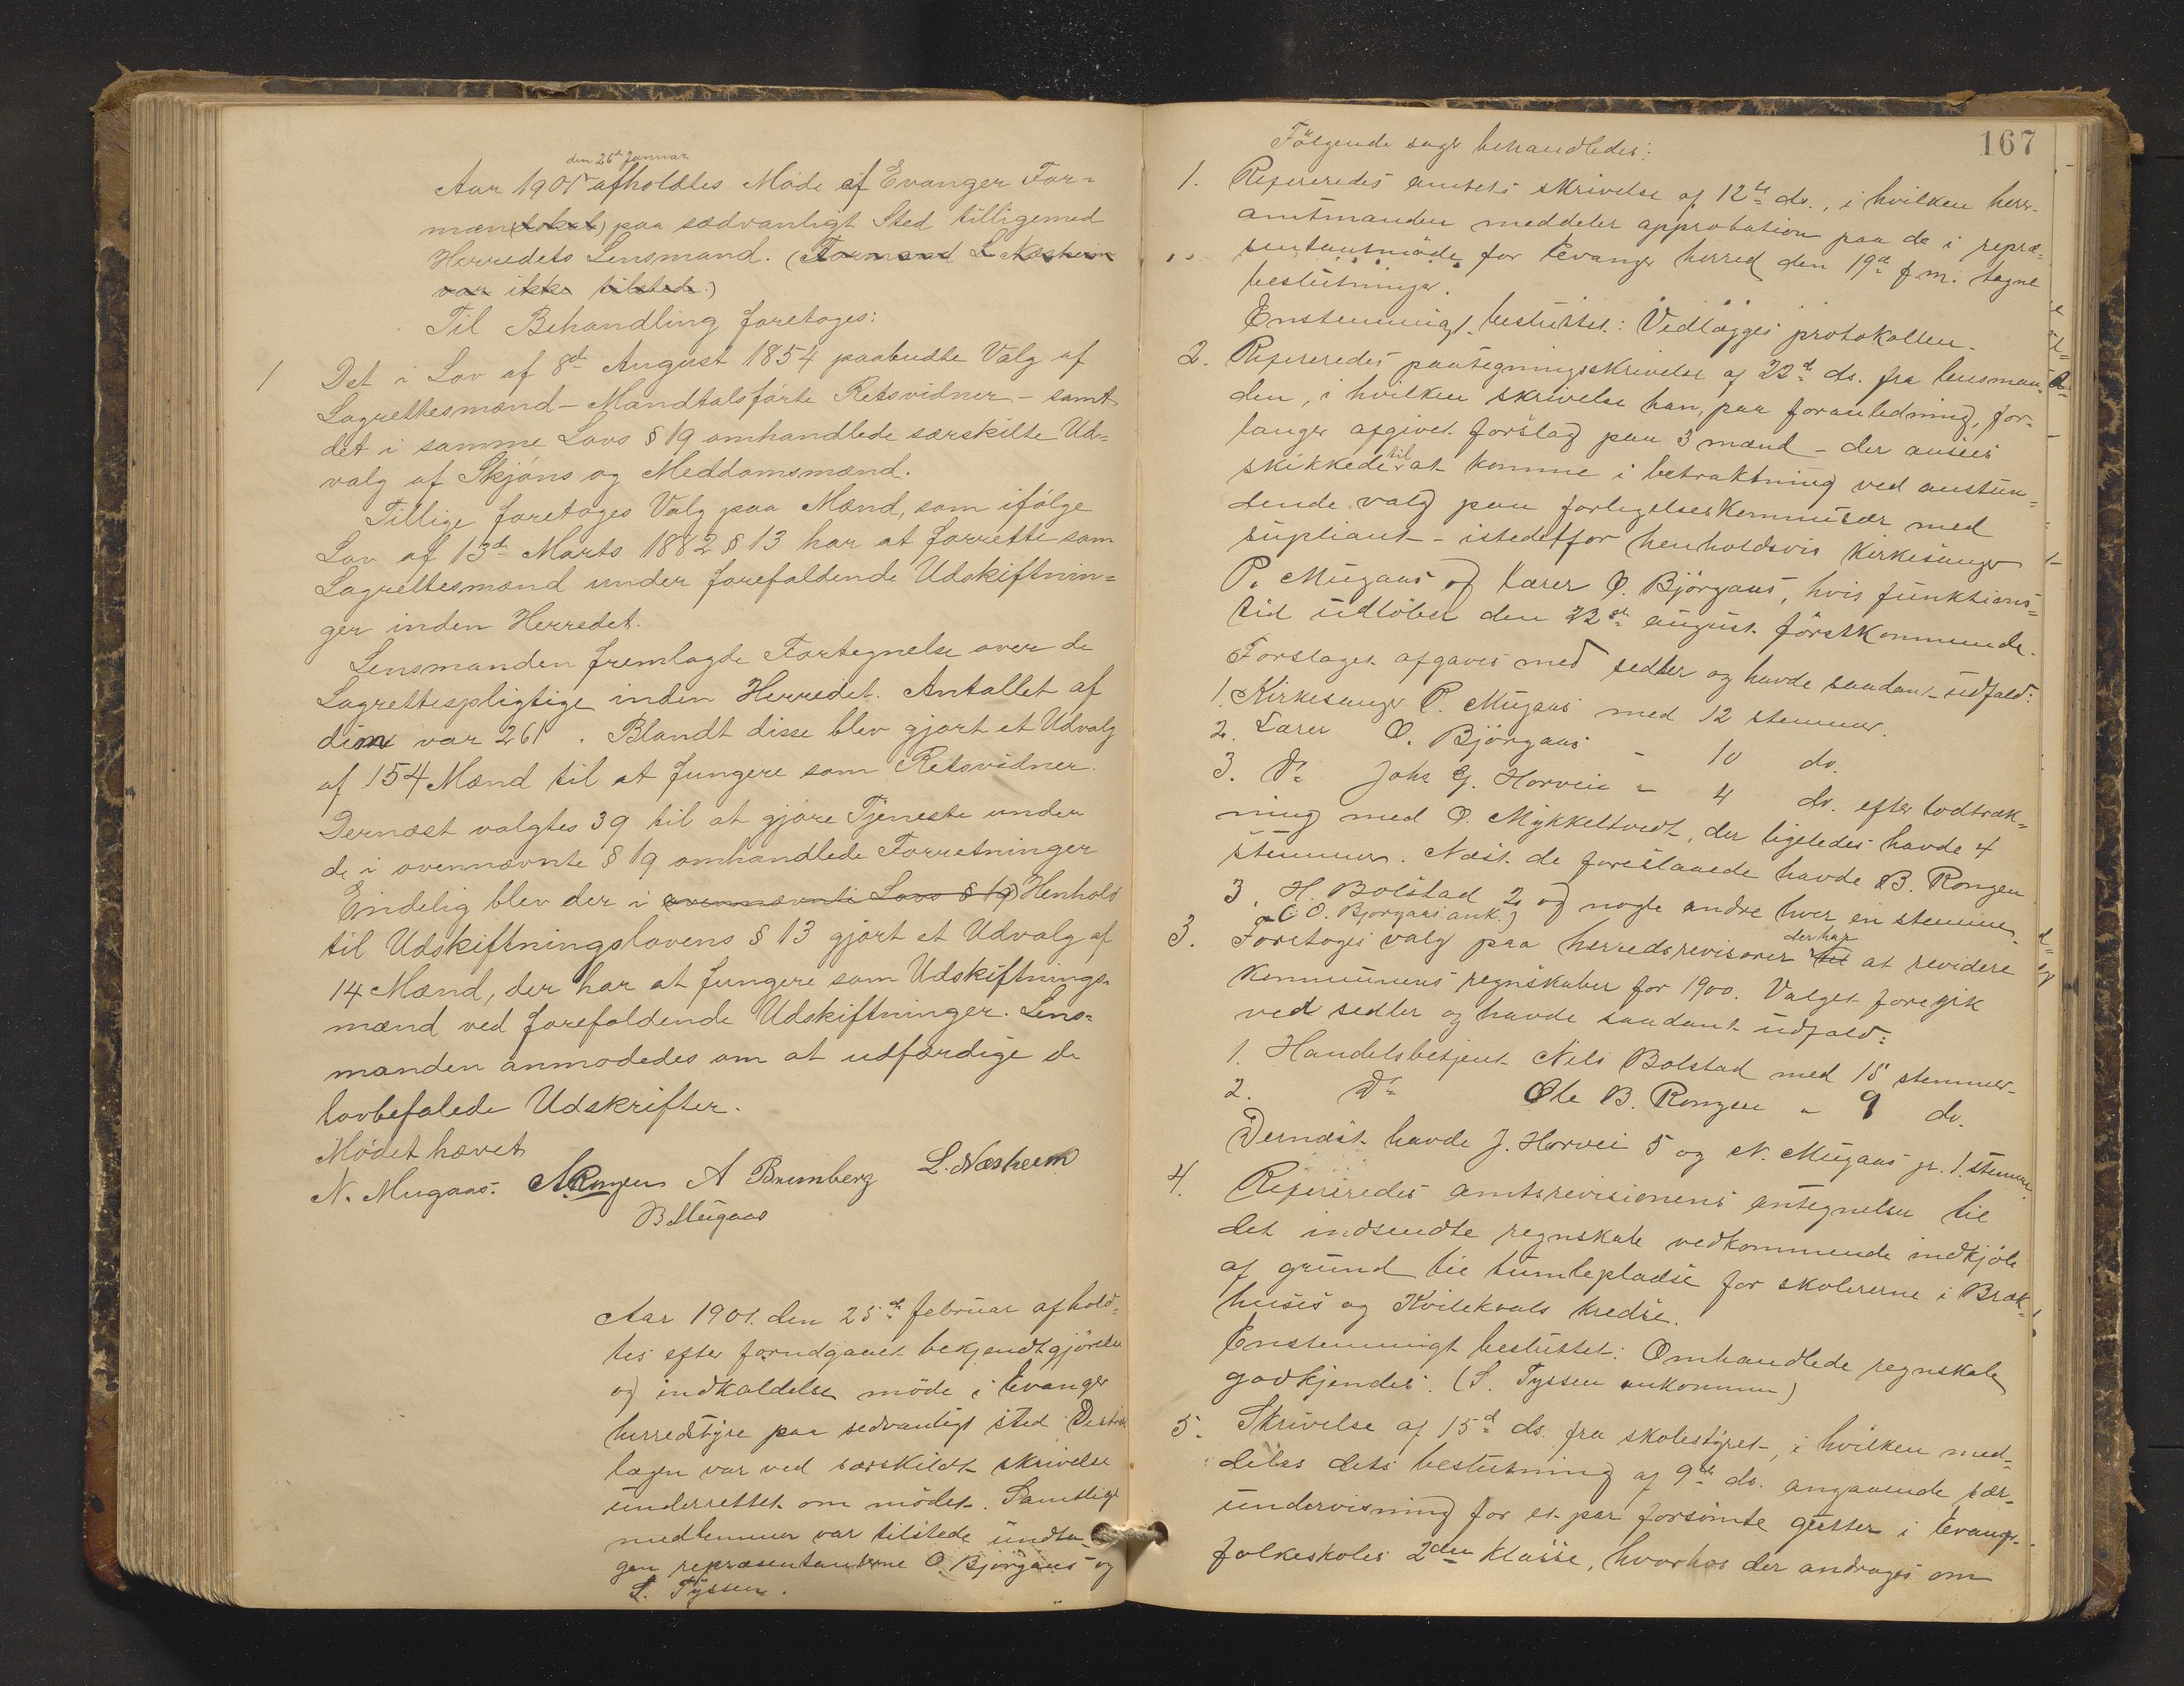 den 26d Januar
Aar 1901 afholdtes Møde af Evanger For=
mæn(dskab) paa sædvanligt Sted tilligemed
Herredets Lensmand. (Formand L Næsheim
var ikke tilstede.)
Til Behandling foretoges:
1 Det i Lov af 8de August 1854 paabudte Valg af
Lagrettesmænd - Mandtalsførte Retsvidner - samt
det i samme Lovs § 19 omhandlede særskilte Ud=
valg af Skjøns og Meddomsmænd.
Tillige foretoges Valg paa Mænd, som ifølge
Lov af 13de Marts 1882 § 13 har at forrette som
Lagrettesmænd under forefaldende Udskiftnin=
ger inden Herredet.
Lensmanden fremlagde Fortegnelse over de
Lagrettespligtige inden Herredet. Antallet af
dem var 261. Blandt disse blev gjort et Udvalg
af 154 Mænd til at fungere som Retsvidner.
Dernæst valgtes 39 til at gjøre Tjeneste under
de i ovennævnte § 19 omhandlede Forretninger
Endelig blev der i (ovennævnte Lovs § 19) Henhold
til Udskiftningslovens § 13 gjort et Udvalg af
14 Mænd, der har at fungere som Udskiftnings-
mænd ved forefaldende Udskiftninger. Lens=
manden anmodedes om at udfærdige de
lovbefalede Udskrifter.
Mødet hævet
N. Mugaas. A Rongen A Brunberg L. Næsheim
B Mugaas
Aar 1901. den 25de februar afhold=
tes efter forudgaaet bekjendtgjörelse
og indkaldelse möde i Evanger
herredstyre paa sedvanligt sted. Distrikts
lægen var ved særskildt skrivelse
underrettet om mödet. Samtlige
medlemmer var tilstede undta-
gen repræsentanterne O. Björgaas og
L. Tyssen.
167
Fölgende sager behandledes:
1. Refereredes amtets skrivelse af 12te ds., i hvilken herr
amtmanden meddeler approbation paa de i repræ=
sentantmöde for Evanger herred den 19de f.m. tagne
beslutninger.
Enstemmigt besluttet: Vedlægges protokollen.
2. Refereredes paategningsskrivelse af 22de ds. fra lensman-
den, i hvilken skrivelse han, paa foranledning, for-
langer afgivet forslag paa 3 mænd - der ansees
skikkede til at komme i betraktning ved anstun=
dende valg paa forligelseskommisær med
supliant - istedetfor henholdsvis kirkesanger
P. Mugaas og lærer O. Björgaas, hvis funktions=
tid udlöber den 22de august förstkommende.
Forslaget afgaves med sedler og havde saadant udfald:
1. Kirkesanger P. Mugaas med 12 stemmer.
2. Lærer O. Björgaas - 10 do.
3. Do Johs G. Horvei - 4 do. efter lodtræk=
ning med O. Mykkeltvedt, der ligeledes havde 4
stemmer. Næst de foreslaaede havde B. Rongen
3, H. Bolstad 2 og nogle andre hver en stemme.
(O. Björgaas ank.)
3. Foretoges valg paa herredsrevisorer der har til at revidere
kommunens regnskaber for 1900. Valget foregik
ved sedler og havde saadant udfald:
1. Handelsbetjent Nils Bolstad med 15 stemmer
2. Do Ole B. Rongen - 9 do.
Dernæst havde J. Horvei 5 og N. Mugaas jr. 1 stemme.
4. Refereredes amtsrevisionens antegnelser til
det indsendte regnskab vedkommende indkjöb
af grund til tumlepladse for skolerne i Bræk=
huses og Kvilekvals kredse.
Enstemmigt besluttet: Omhandlede regnskab
godkjendes. (L. Tyssen ankommen)
5. Skrivelse af 15de ds. fra skolestyret, i hvilken med=
deles dets beslutning af 9de ds. angaaende sær-
undervisning for et par forsömte gutter i Evanger
folkeskoles 2den klasse, hvorhos der androges om